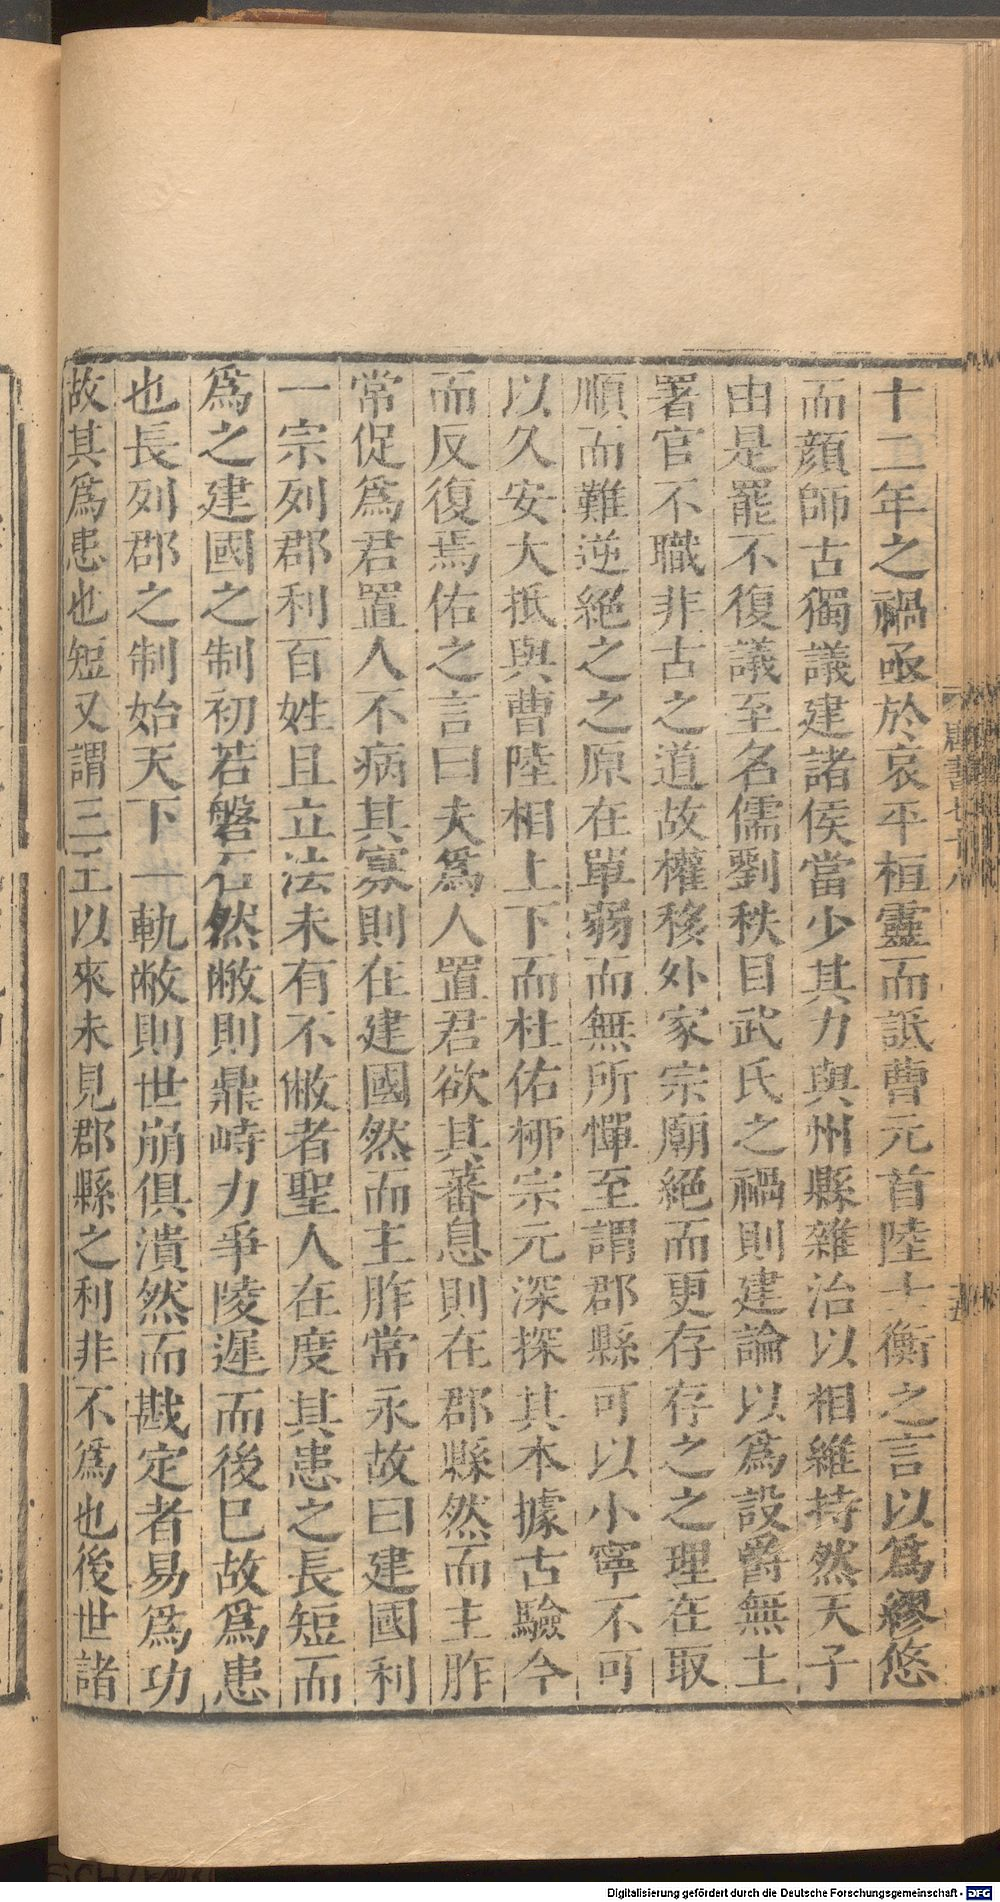 十二年之禍亟於哀平桓靈而詆曹元首陸士衡之言以爲繆悠
而顏師古獨議建諸侯當少其力與州縣雜治以相維持然天子
由是罷不復議至名儒劉秩目武氏之禍則建論以爲設爵無土
署官不職非古之道故權移外家宗廟絕而更存存之之理在取
順而難逆絕之之原在單弱而無所憚至謂郡縣可以小寧不可
以久安大抵與曹陸相上下而杜佑柳宗元深探其本據古驗今
而反復焉佑之言曰夫爲人置君欲其蕃息則在郡縣然而主胙
常促爲君置人不病其寡則在建國然而主胙常永故曰建國利
一宗列郡利百姓且立法未有不敝者聖人在度其患之長短而
爲之建國之制初若磐石然敝則鼎峙力爭陵遲而後已故爲患
也長列郡之制始天下一軌敝則世崩俱潰然而戡定者易爲功
故其爲患也短又謂三王以來未見郡縣之利非不爲也後世諸
唐書七十八
Digitalisierung gefördert durch die Deutsche Forschungsgemeinschaft - DFG